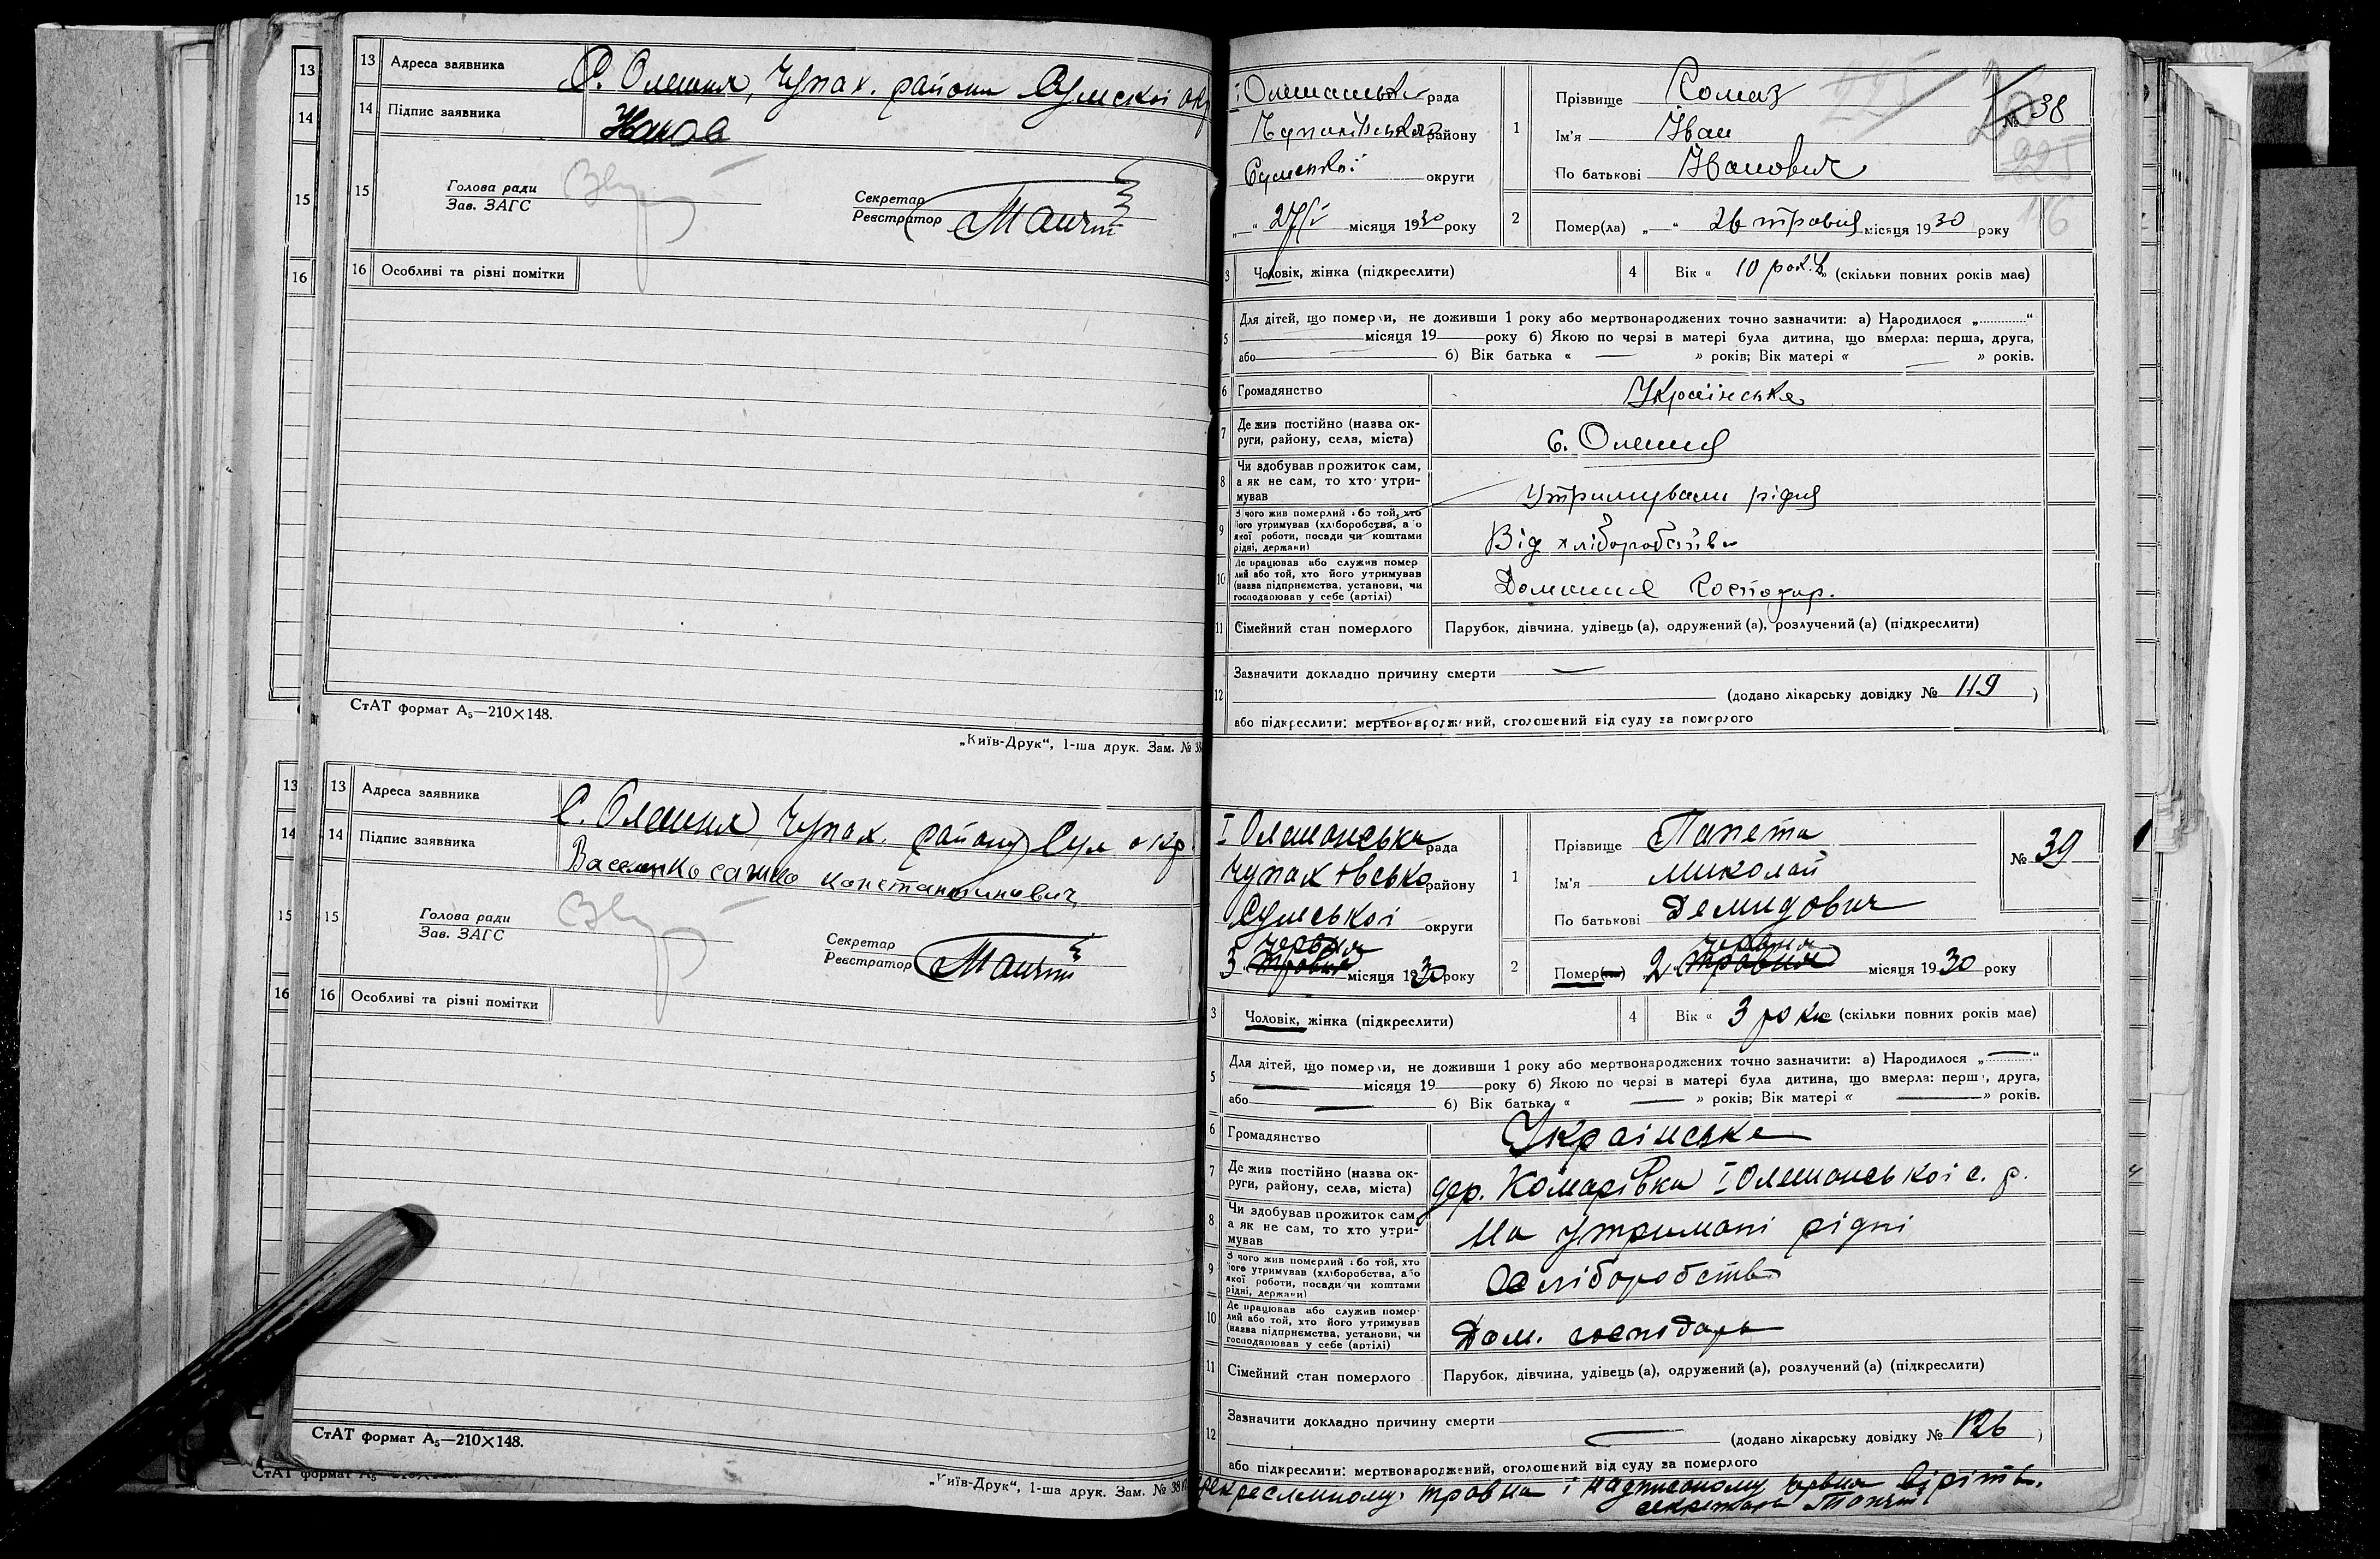 13 Адреса заявника С. Олешня, Чупах. району Сумської окр
14 Підпис заявника
15 Голова ради
Зав. ЗАГС
Секретар
Реєстратор
16 Особливі та різні помітки
СтАТ формат А₅—210×148.
„Київ-Друк“, 1-ша друк. Зам. № 38
13 Адреса заявника С. Олешня Чупах. району Сум окр.
14 Підпис заявника Василенко Сашко Константинович
15 Голова ради
Зав. ЗАГС
Секретар
Реєстратор
16 Особливі та різні помітки
СтАТ формат А₅—210×148.
„Київ-Друк“, 1-ша друк. Зам. № 38
І Олешанська рада
Чупахівського району
Сумської округи
„ “ 27/V місяця 1930 року
1 Прізвище
Ім'я Іван
По батькові Іванович
№ 38
225
2 Помер(ла) „ “ 26 травня місяця 1930 року
3 Чоловік, жінка (підкреслити)
4 Вік « 10 рок.в » (скільки повних років має)
5 Для дітей, що померли, не доживши 1 року або мертвонароджених точно зазначити: а) Народилося „ “
місяця 19 року б) Якою по черзі в матері була дитина, що вмерла: перша, друга,
або 6) Вік батька « — » років; Вік матері « — » років.
6 Громадянство Українське
7 Де жив постійно (назва ок-
руги, району, села, міста) с. Олешня
8 Чи здобував прожиток сам,
а як не сам, то хто утри-
мував Утримували рідня
9 З чого жив померлий або той, хто
його утримував (хліборобства, або
якої роботи, посади чи коштами
рідні, держави) Від хліборобства
10 Де працював або служив помер
лий або той, хто його утримував
(назва підприємства, установи, чи
господарював у себе (артілі) Домашнє господар.
11 Сімейний стан померлого Парубок, дівчина, удівець (а), одружений (а), розлучений (а) (підкреслити)
12 Зазначити докладно причину смерти —
(додано лікарську довідку № 119 )
або підкреслити: мертвонароджений, оголошений від суду за померлого
І Олешанська рада
Чупахівсько району
Сумської округи
червня
3 травня місяця 1930 року
1 Прізвище Папета
Ім'я Миколай
По батькові Демидович
№ 39
червня
2 Помер(ла) 2 травня місяця 1930 року
3 Чоловік, жінка (підкреслити)
4 Вік « 3 роки (скільки повних років має)
5 Для дітей, що померли, не доживши 1 року або мертвонароджених точно зазначити: а) Народилося „ — “
— місяця 19 року б) Якою по черзі в матері була дитина, що вмерла: перша, друга,
або — 6) Вік батька « — » років; Вік матері « — » років.
6 Громадянство Українське
7 Де жив постійно (назва ок-
руги, району, села, міста) дер. Комарівка І Олешанської с. р.
8 Чи здобував прожиток сам,
а як не сам, то хто утри-
мував На утримані рідні
9 З чого жив померлий або той, хто
його утримував (хліборобства, або
якої роботи, посади чи коштами
рідні, держави) Хліборобств
10 Де працював або служив помер-
лий або той, хто його утримував
(назва підприємства, установи, чи
господарював у себе (артілі) Дом. господарь
11 Сімейний стан померлого Парубок, дівчина, удівець (а), одружений (а), розлучений (а) (підкреслити)
12 Зазначити докладно причину смерти
— (додано лікарську довідку № 126 )
або підкреслити: мертвонароджений, оголошений від суду за померлого
рекресленному травня і надписаному червня вірить.
секретарь